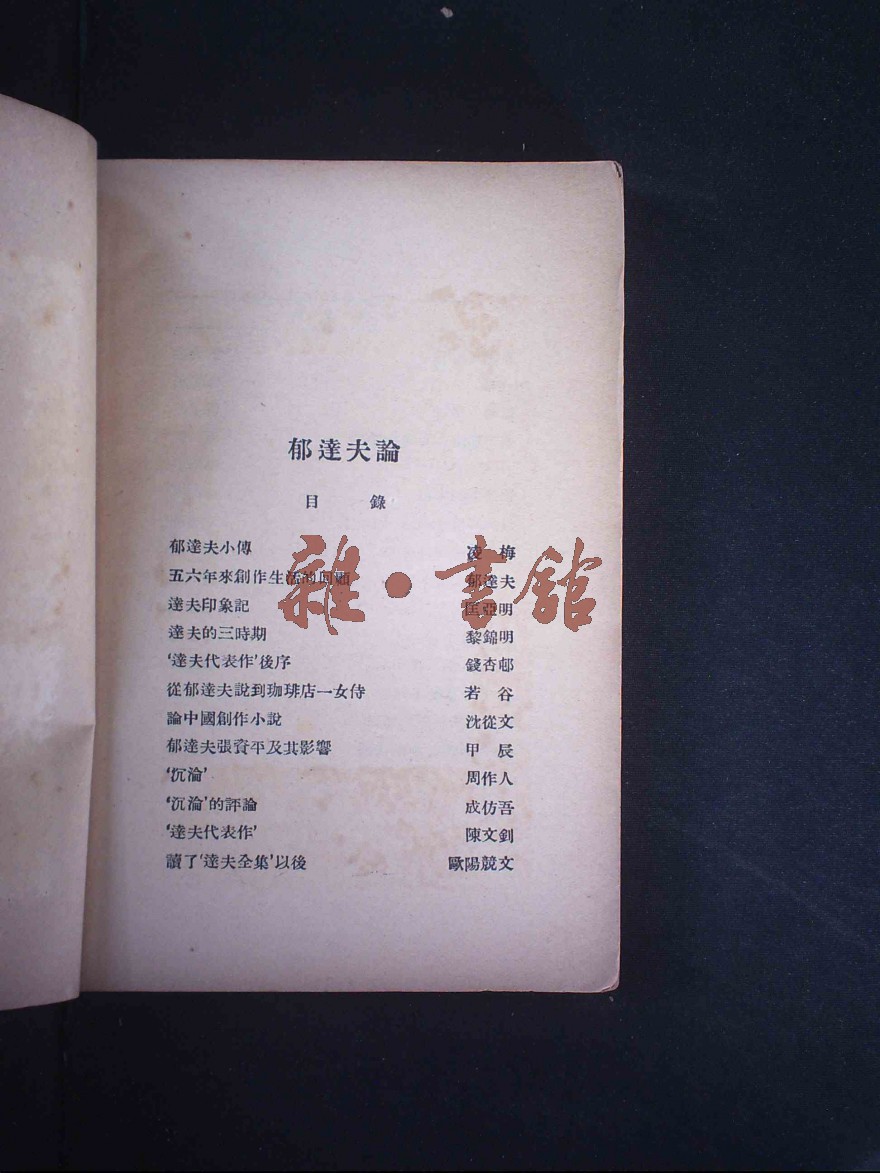 郁達夫論
目 錄
郁達夫小傳 凌 梅
五六年來創作生活的回顧 郁達夫
達夫印象記 匡亞明
達夫的三時期 黎錦明
‘達夫代表作’後序 錢杏邨
從郁達夫說到珈琲店一女侍 若 谷
論中國創作小說 沈從文
郁達夫張資平及其影響 甲 辰
‘沉淪’ 周作人
‘沉淪’的評論 成仿吾
‘達夫代表作’ 陳文釗
讀了‘達夫全集’以後 歐陽競文
雜·書館